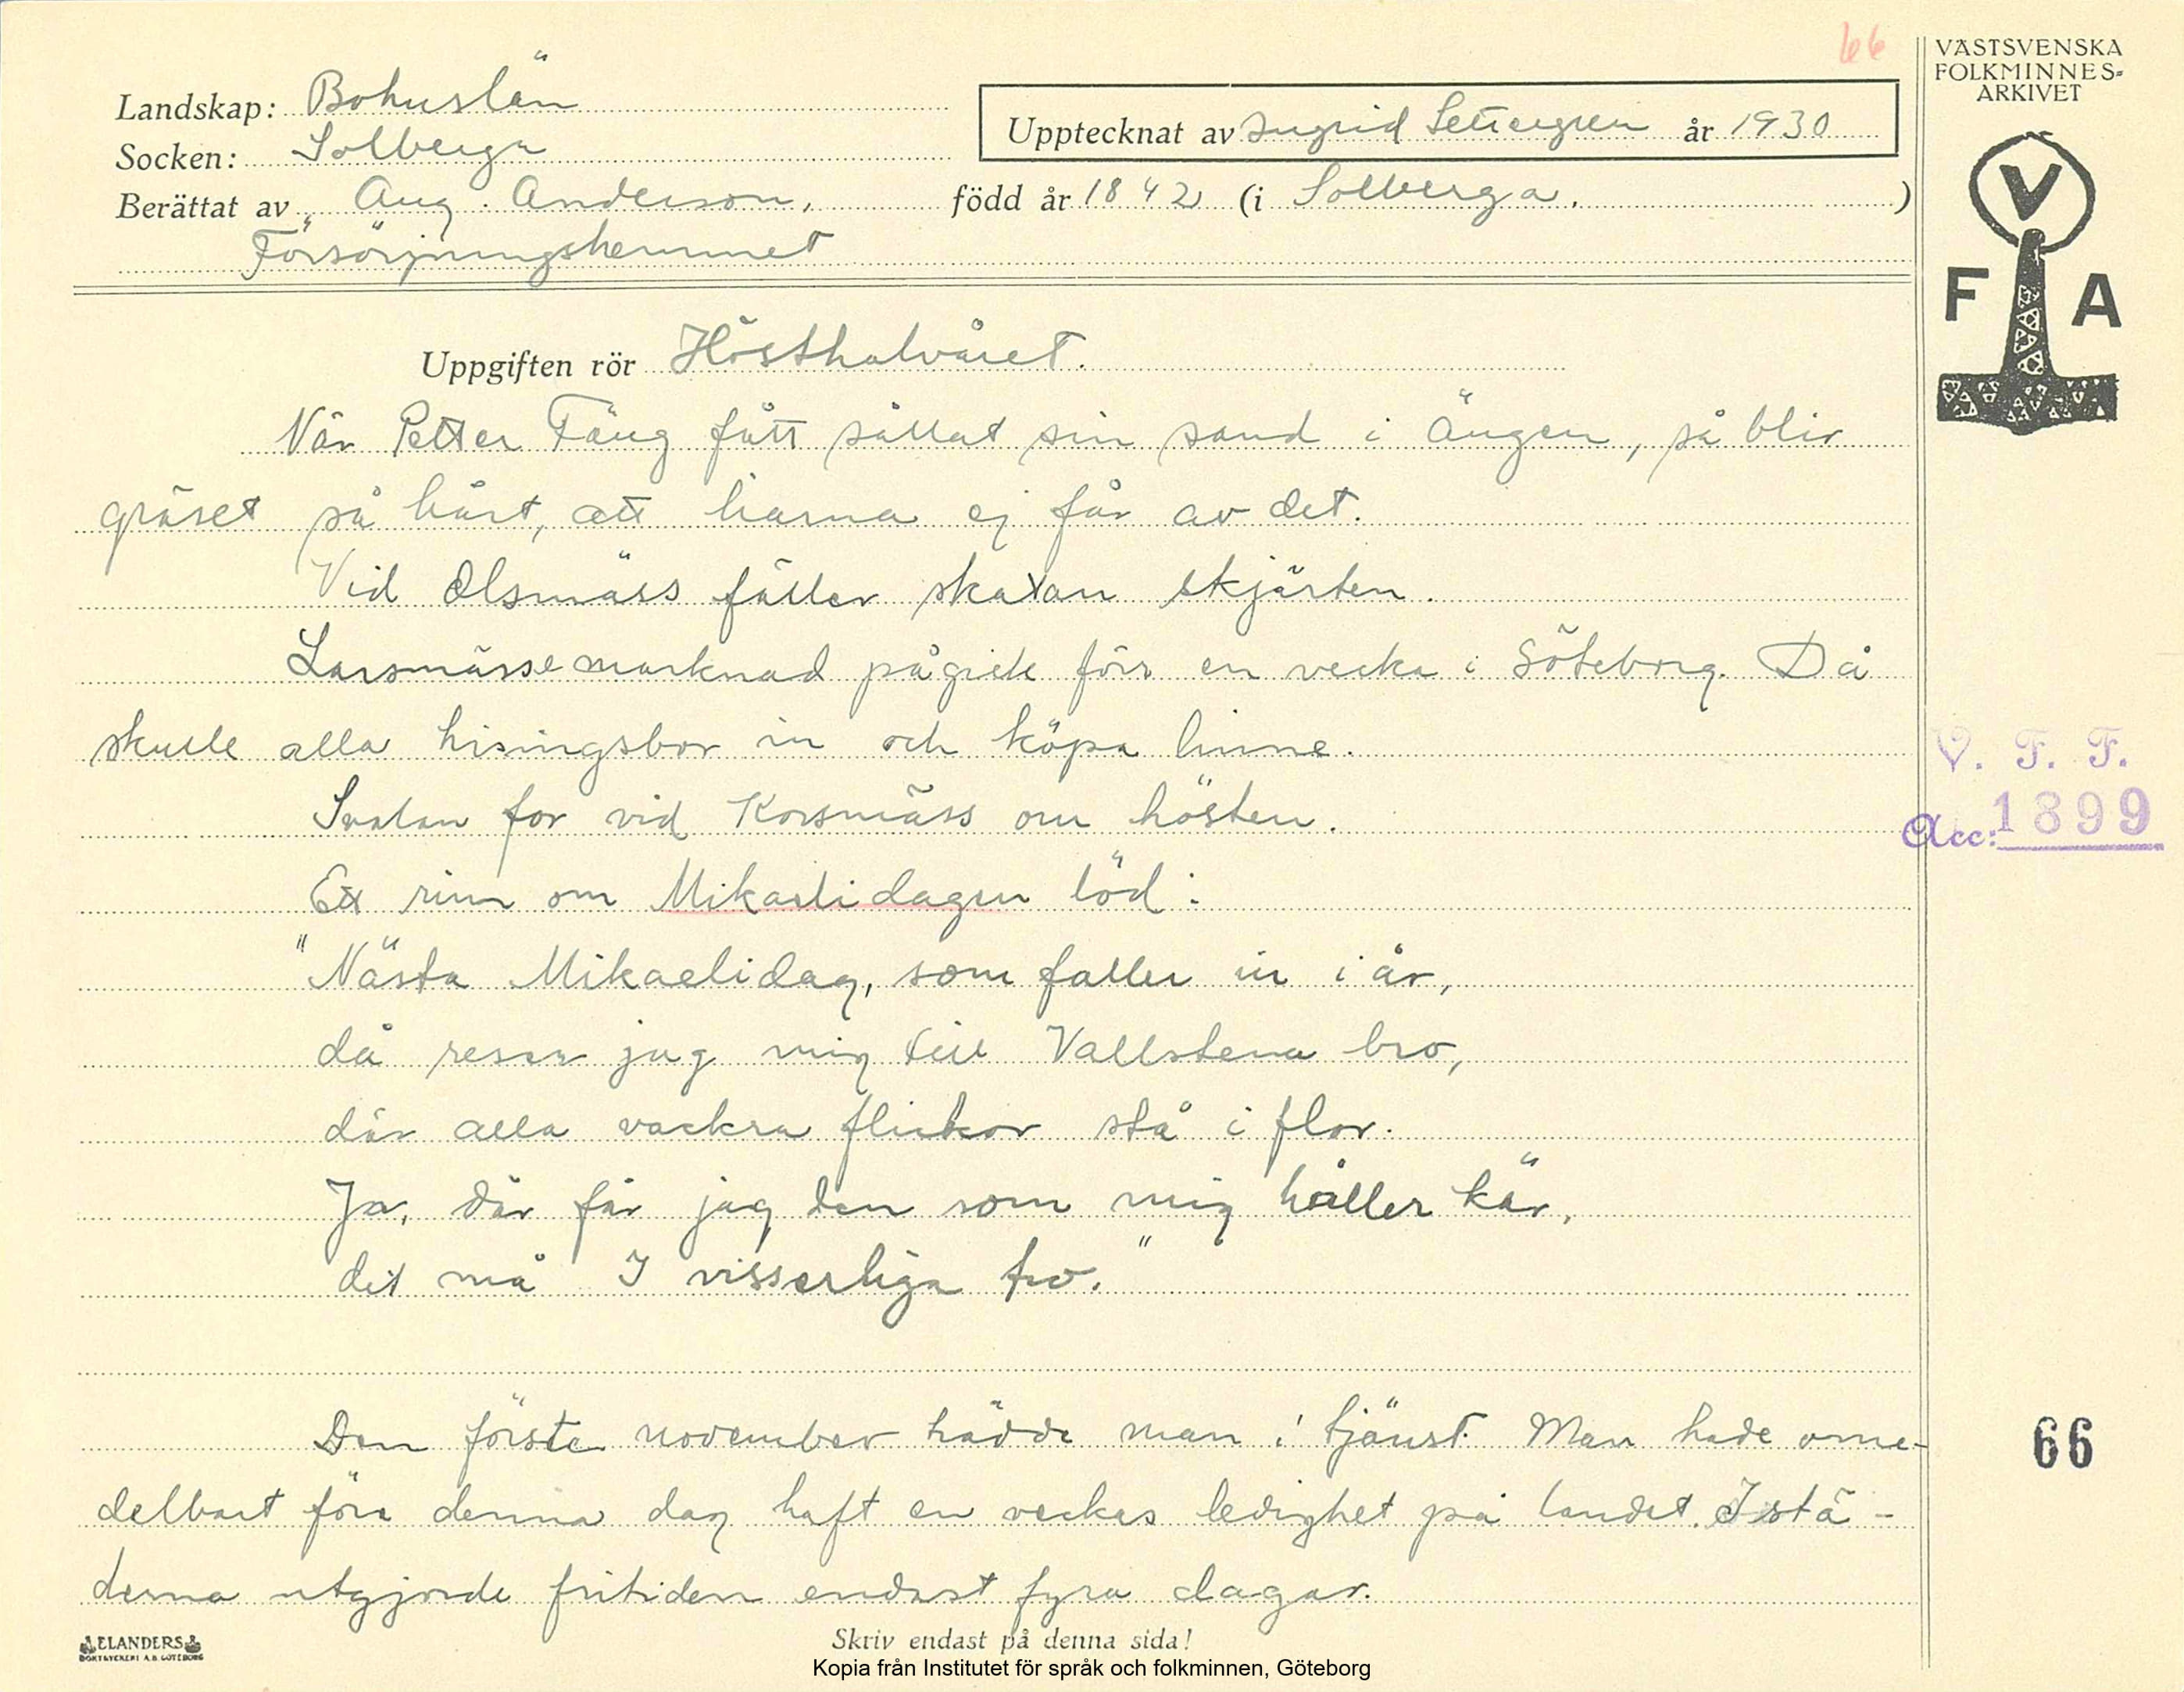 66
VÄSTSVENSKA
FOLKMINNES-
ARKIVET
Landskap: Bohuslän
Upptecknat av Ingrid Settergren år 1930
Socken: Solberga
Berättat av Aug. Anderson, född år 1842 (i Solberga. )
Försörjningshemmet
V
F A
Uppgiften rör Hösthalvåret.
När Petter Täng fått sållat sin sand i ängen, så blir
gräset så hårt, att liarna ej får av det.
Vid Olsmäss fäller skatan skjärten.
Larsmässemarknad pågick förr en vecka i Göteborg. Då
skulle alla hisingsbor in och köpa linne.
V. F. F.
Acc: 1899
Svalan for vid Korsmäss om hösten.
Ett rim om Mikaelidagen löd:
"Nästa Mikaelidag, som faller in i år,
då reser jag mig till Vallstena bro,
där alla vackra flickor stå i flor.
Ja, där får jag den som mig håller kär,
det må I visserliga tro."
Den förste november hädde man i tjänst. Man hade ome-
delbart före denna dag haft en veckas ledighet på landet. I stä-
derna utgjorde fritiden endast fyra dagar.
66
ELANDERS
BOKTRYCKERI A.B. GÖTEBORG
Skriv endast på denna sida!
Kopia från Institutet för språk och folkminnen, Göteborg